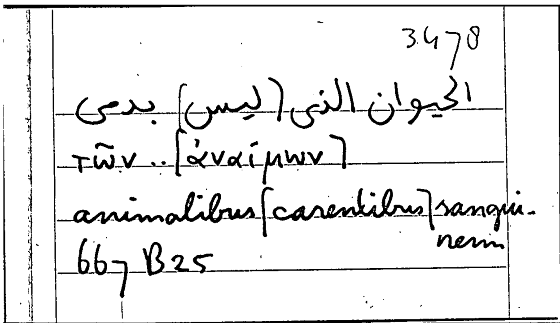 3478
الحيوان الذى [ليس] بدمى
τῶν .. [ἀναίμων]
animalibus [carentibus] sangui-
nem
667 B25